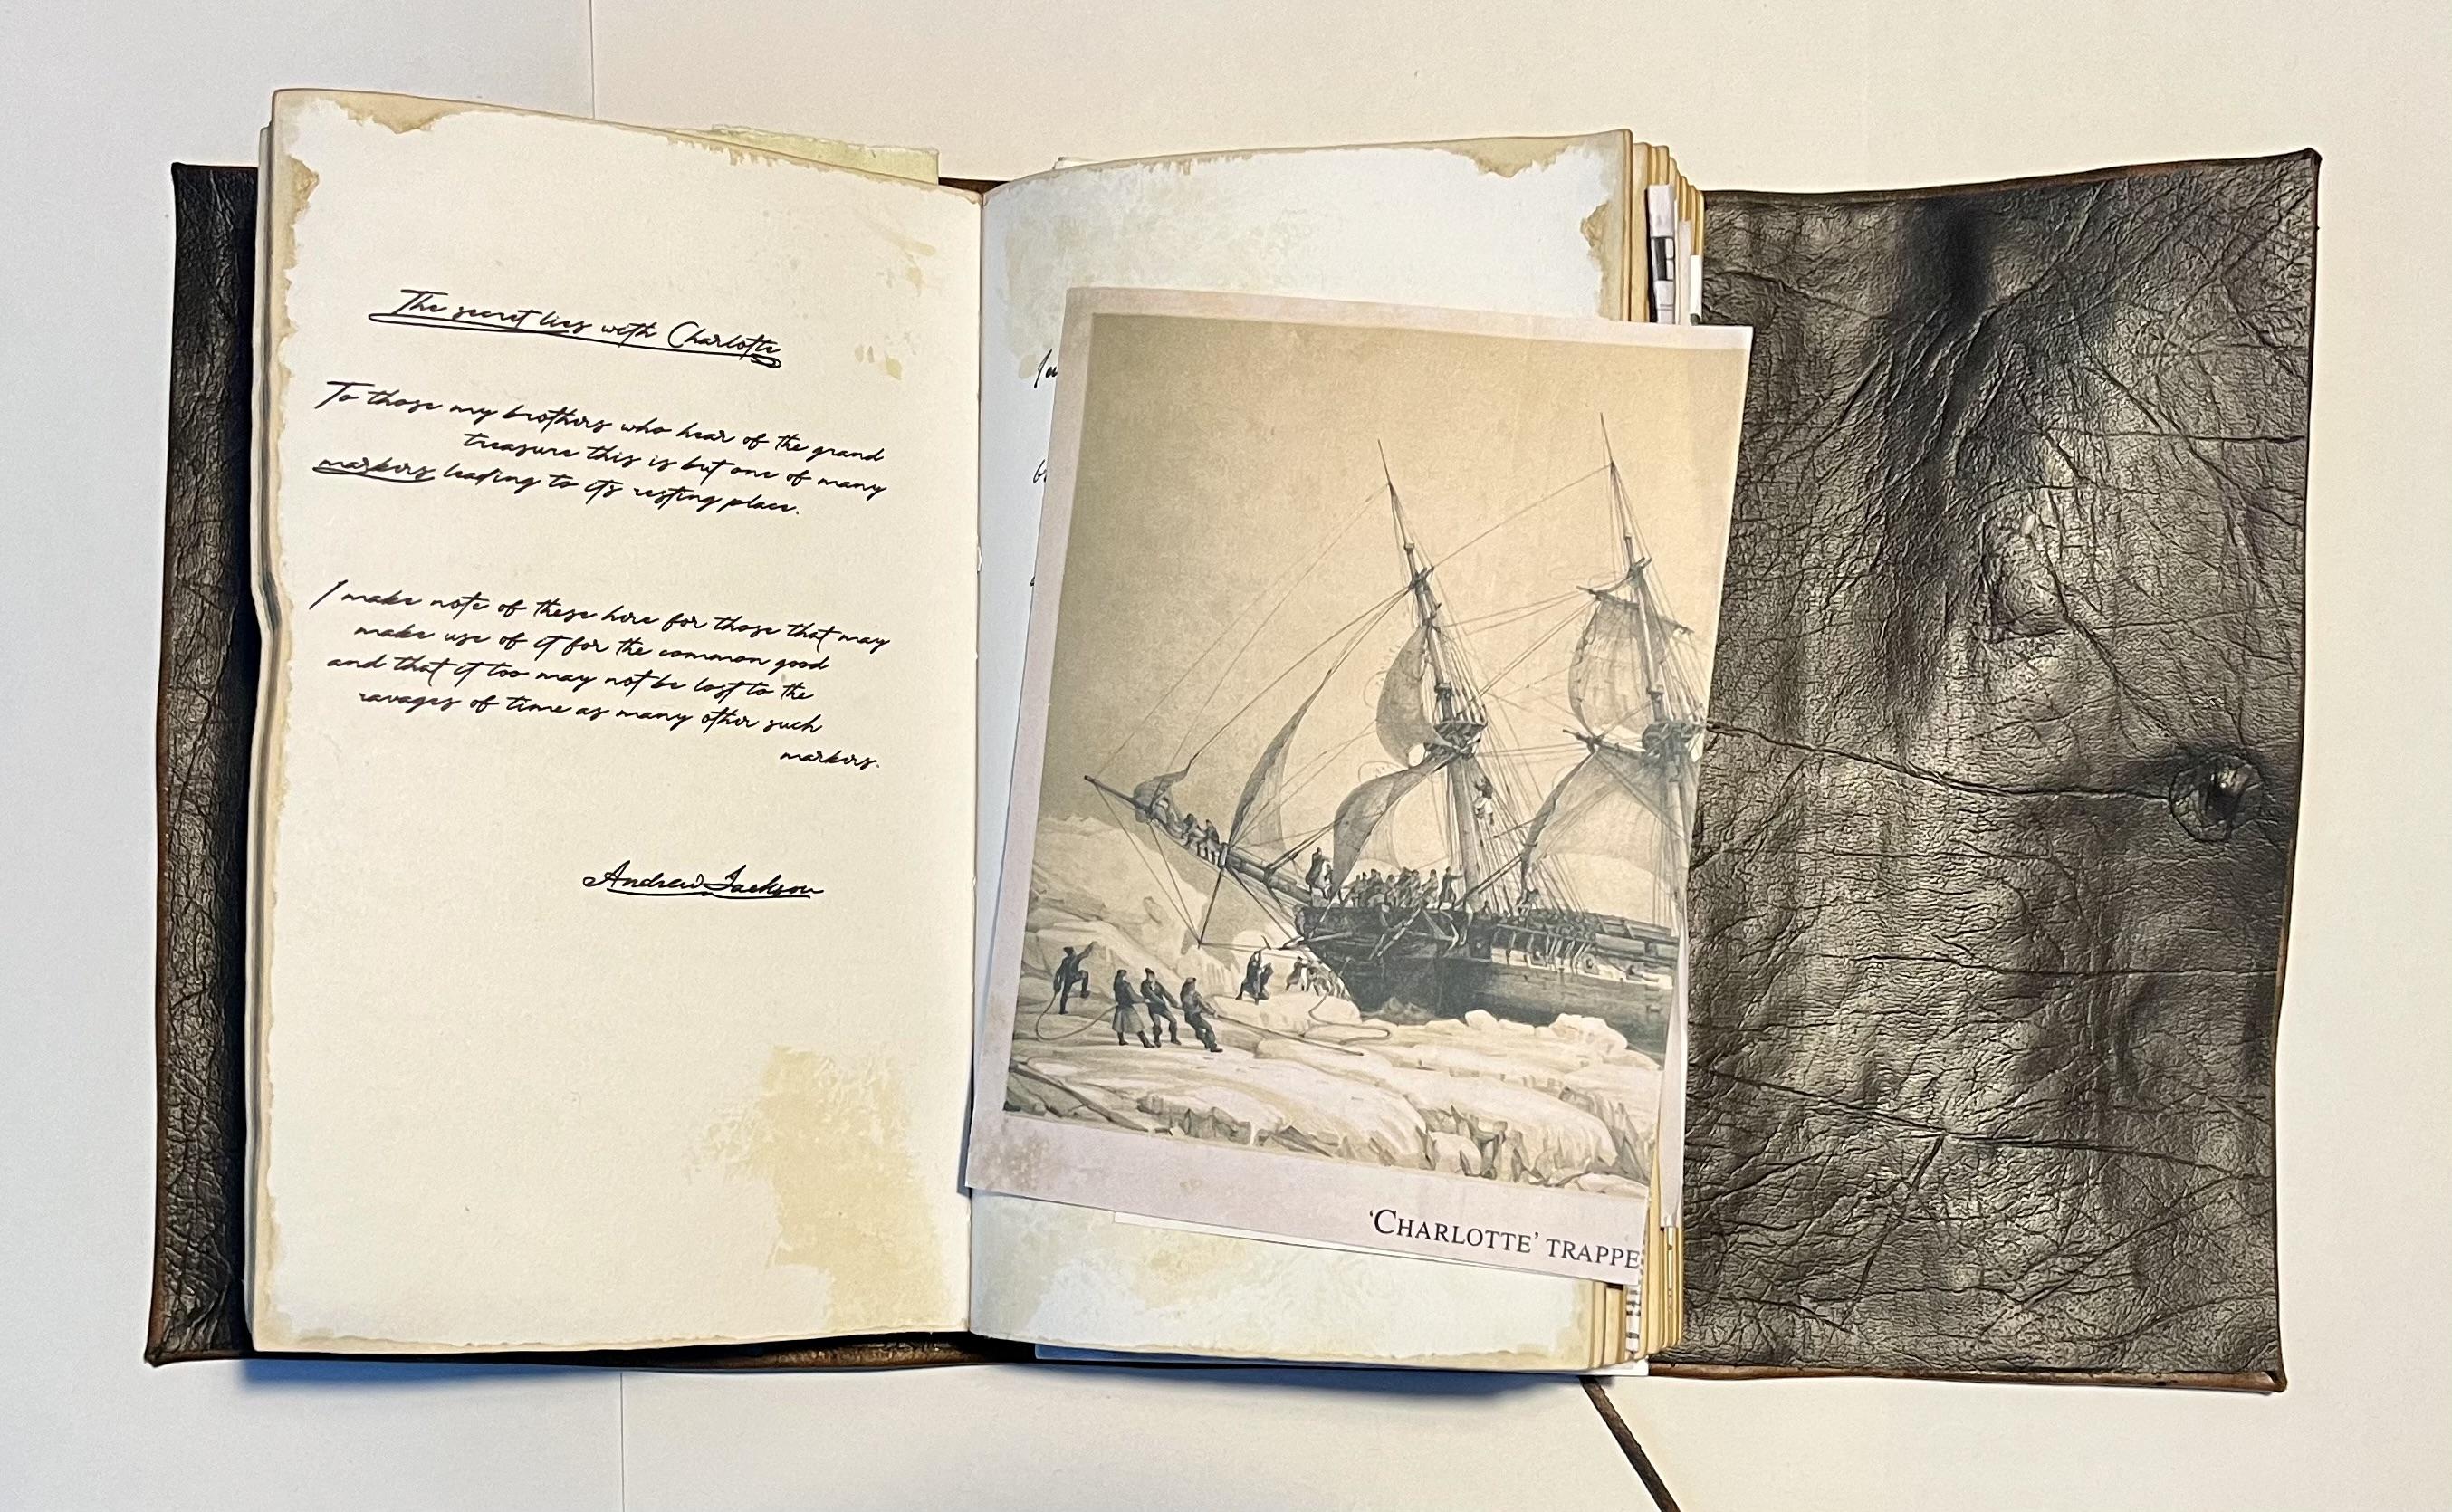 The secret lies with Charlotte
To those my brothers who hear of the grand
treasure this is but one of many
markers leading to its resting place.
I make note of these here for those that may
make use of it for the common good
and that it too may not be lost to the
ravages of time as many other such
markers.
Andrew Jackson
'CHARLOTTE' TRAPPE